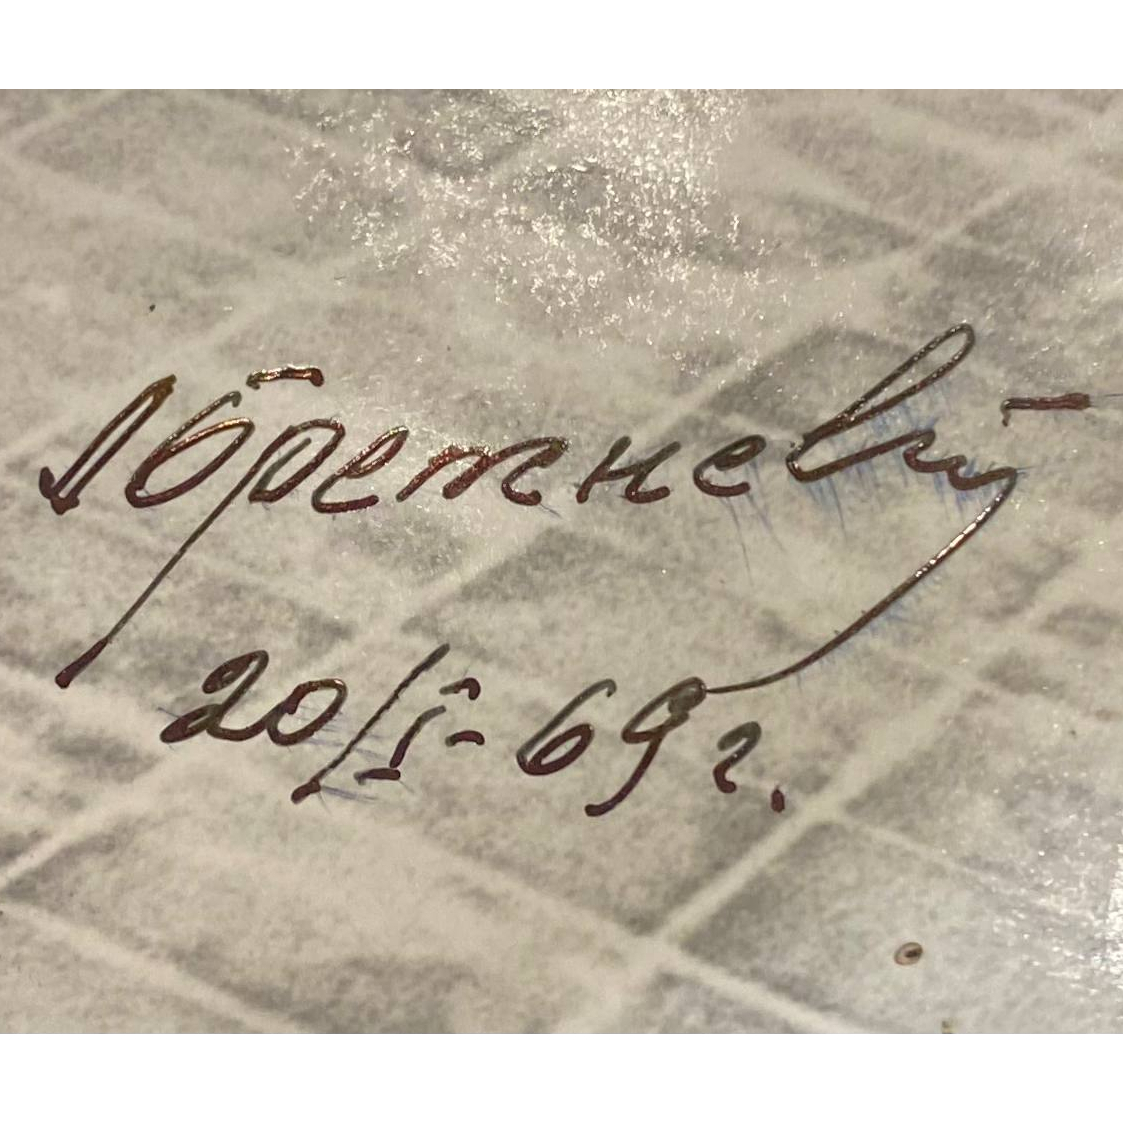 ЛБрежнев
20/I-69 г.